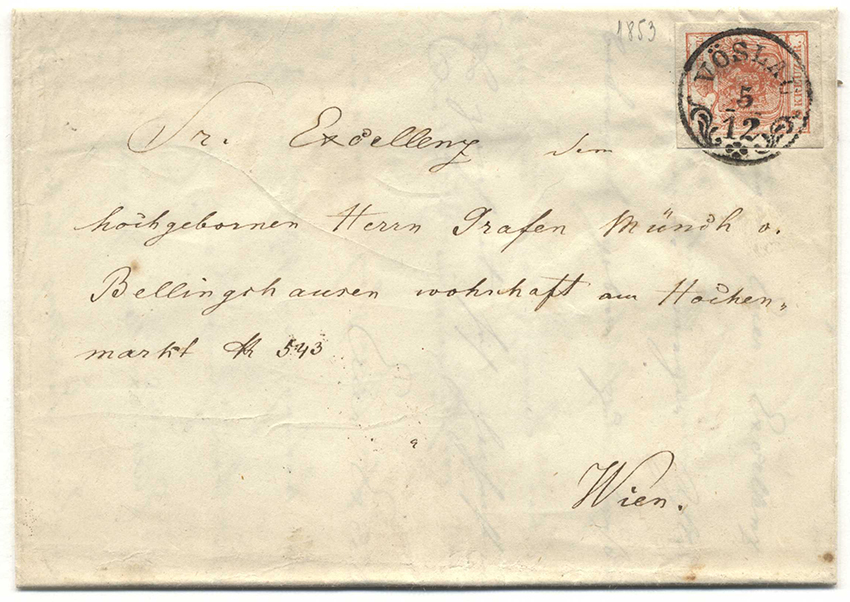 1853
VÖSLAU
5
12
Sr. Excellenz dem
hochgebornen Herrn Grafen Münch v.
Bellingshausen wohnhaft am Hochen„
markt № 543
Wien.